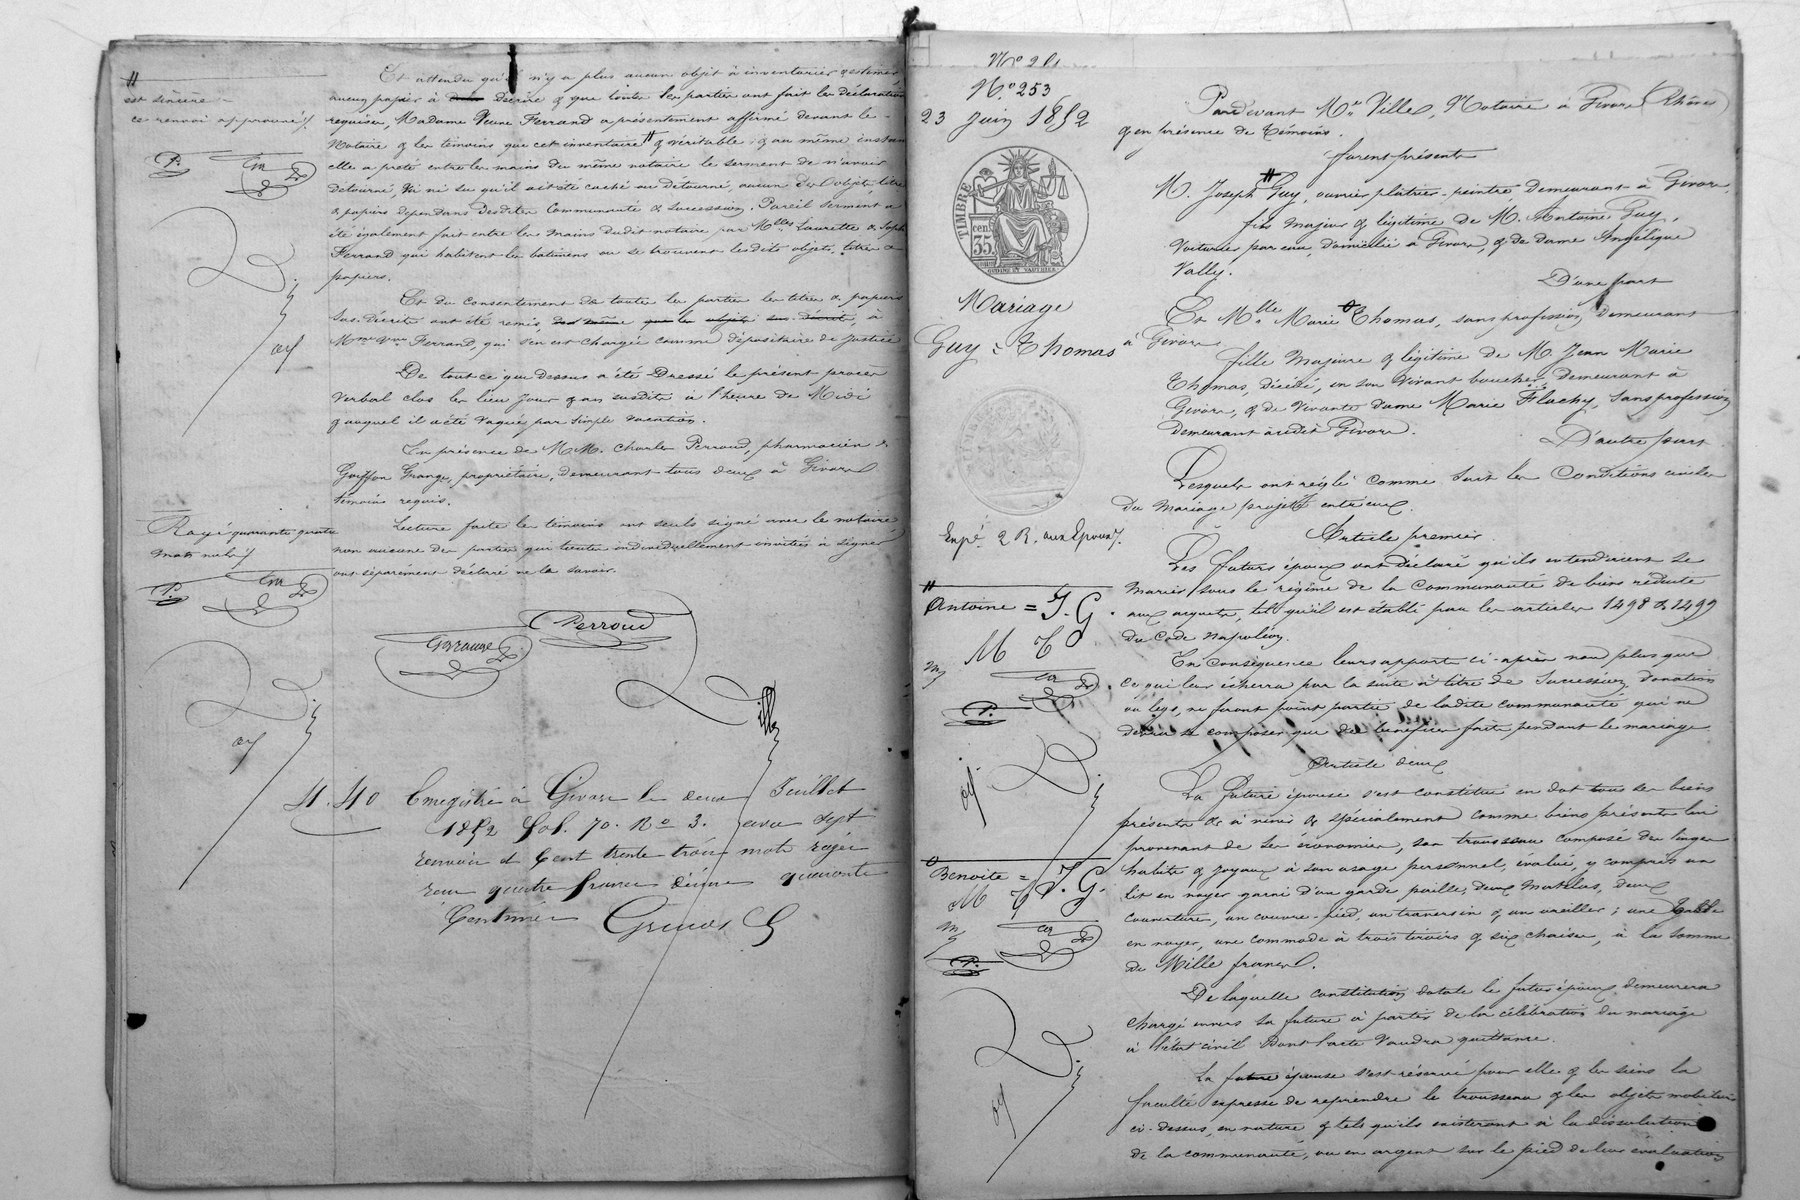 #
est sincère =
ce renvoi approuvé /.
P. Gr
Et attendu qu'il n'y a plus aucun objet à inventorier & estimer,
aucun papier à décrire & que toutes les parties ont fait les déclarations
requises, Madame Veuve Ferrand a présentement affirmé devant le
Notaire & les témoins que cet inventaire # & véritable ; & au même instant
elle a prêté entre les mains du même notaire le serment de n'avoir
détourné, ni su qu'il ait été caché ou détourné, aucun des objets, titres
& papiers dépendans desdites Communauté & Succession. Pareil serment a
été également fait entre les mains dudit notaire par Mlles Laurette & Soph
Ferrand qui habitent les batimens où se trouvent lesdits objets, titres &
papiers.
Et du consentement de toutes les parties les titres & papiers
sus-décrits ont été remis, que les objets sus-décrits, à
Mme Vve Ferrand, qui s'en est chargée comme dépositaire de justice
De tout ce que dessus a été dressé le présent procès
verbal clos les lieu jour & an susdits à l'heure de Midi
& auquel il a été vaqué par simple vacation.
En présence de MM. Charles Perroud, pharmacien &
Goiffon Grange, propriétaire, demeurant tous deux à Givors
témoins requis.
Lecture faite les témoins ont seuls signé avec le notaire,
non aucune des parties qui toutes individuellement invitées à signer
ont séparément déclaré ne le savoir.
Rayé quarante quatre
mots nuls /.
P. Gr
Grange Perroud
Ville
4. 40 Enregistré à Givors le deux Juillet
1852 fol. 70. Ro 3. avec sept
renvois et Cent trente trois mots rayés
reçu quatre francs décime quarante
Centimes
No 253
23 Juin 1852
TIMBRE
35 cen.
Mariage
Guy = Thomas
Expé. 2 R. aux Epoux /.
#
Antoine = J. G.
M T
Gr
P.
Benoite = J. G.
M T
Gr
P.
Pardevant Me Ville, Notaire à Givors (Rhône)
& en présence de témoins.
furent présents
M. Joseph # Guy, ouvrier plâtrier-peintre demeurant à Givors,
fils majeur & légitime de M. Antoine Guy,
voiturier par eau, domicilié à Givors, & de dame Angélique
Vally.
D'une part
Et Mlle Marie Thomas, sans profession demeurant
à Givors
fille Majeure & légitime de M. Jean Marie
Thomas, décédé, en son vivant boucher demeurant à
Givors, & de vivante dame Marie Flachy, sans profession
demeurant audit Givors.
D'autre part
Lesquels ont réglé comme suit les Conditions civiles
du mariage projeté entr'eux.
Article premier
Les futurs époux ont déclaré qu'ils entendaient se
marier sous le régime de la communauté de biens réduite
aux acquets, tel qu'il est établi par les articles 1498 & 1499
du Code Napoléon.
En conséquence leurs apports ci-après non plus que
ce qui leur écherra par la suite à titre de Succession, donation
ou legs, ne feront point partie de ladite communauté qui ne
devra se composer que des bénéfices faits pendant le mariage
Article deux
La future épouse s'est constitué en dot tous ses biens
présents & à venir & spécialement comme biens présents lui
provenant de ses économies, son trousseau composé de linges
habits & joyaux à son usage personnel, évalué, y compris un
lit en noyer garni d'un garde paille, deux matelas, deux
couvertures, un couvre-pied, un traversin & un oreiller ; une table
en noyer, une commode à trois tiroirs & six chaises, à la somme
de Mille francs.
De laquelle constitution dotale le futur époux demeurera
chargé envers sa future à partir de la célébration du mariage
à l'état civil dont l'acte vaudra quittance.
La future épouse s'est réservé pour elle & les siens la
faculté expresse de reprendre le trousseau & les objets mobiliers
ci-dessus, en nature & tels qu'ils existeront à la dissolution
de la communauté, ou en argent sur le pied de leur évaluation